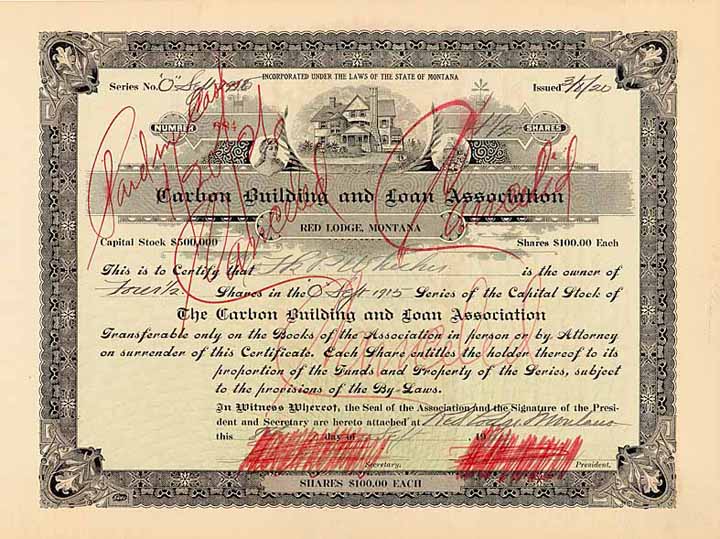 INCORPORATED UNDER THE LAWS OF THE STATE OF MONTANA
Series No. "O" Sept 1915
Issued 3/8/20
NUMBER
SHARES
Paid in Cash
Cancelled
Carbon Building and Loan Association
RED LODGE, MONTANA
Capital Stock $500,000
Shares $100.00 Each
This is to Certify that is the owner of
Four 1/2 Shares in the "O" Sept. 1915 Series of the Capital Stock of
The Carbon Building and Loan Association
Transferable only on the Books of the Association in person or by Attorney
on surrender of this Certificate. Each Share entitles the holder thereof to its
proportion of the Funds and Property of the Series, subject
to the provisions of the By-Laws.
In Witness Whereof, the Seal of the Association and the Signature of the Presi-
dent and Secretary are hereto attached at Red Lodge, Montana
this day of 19
Secretary.
President.
SHARES $100.00 EACH